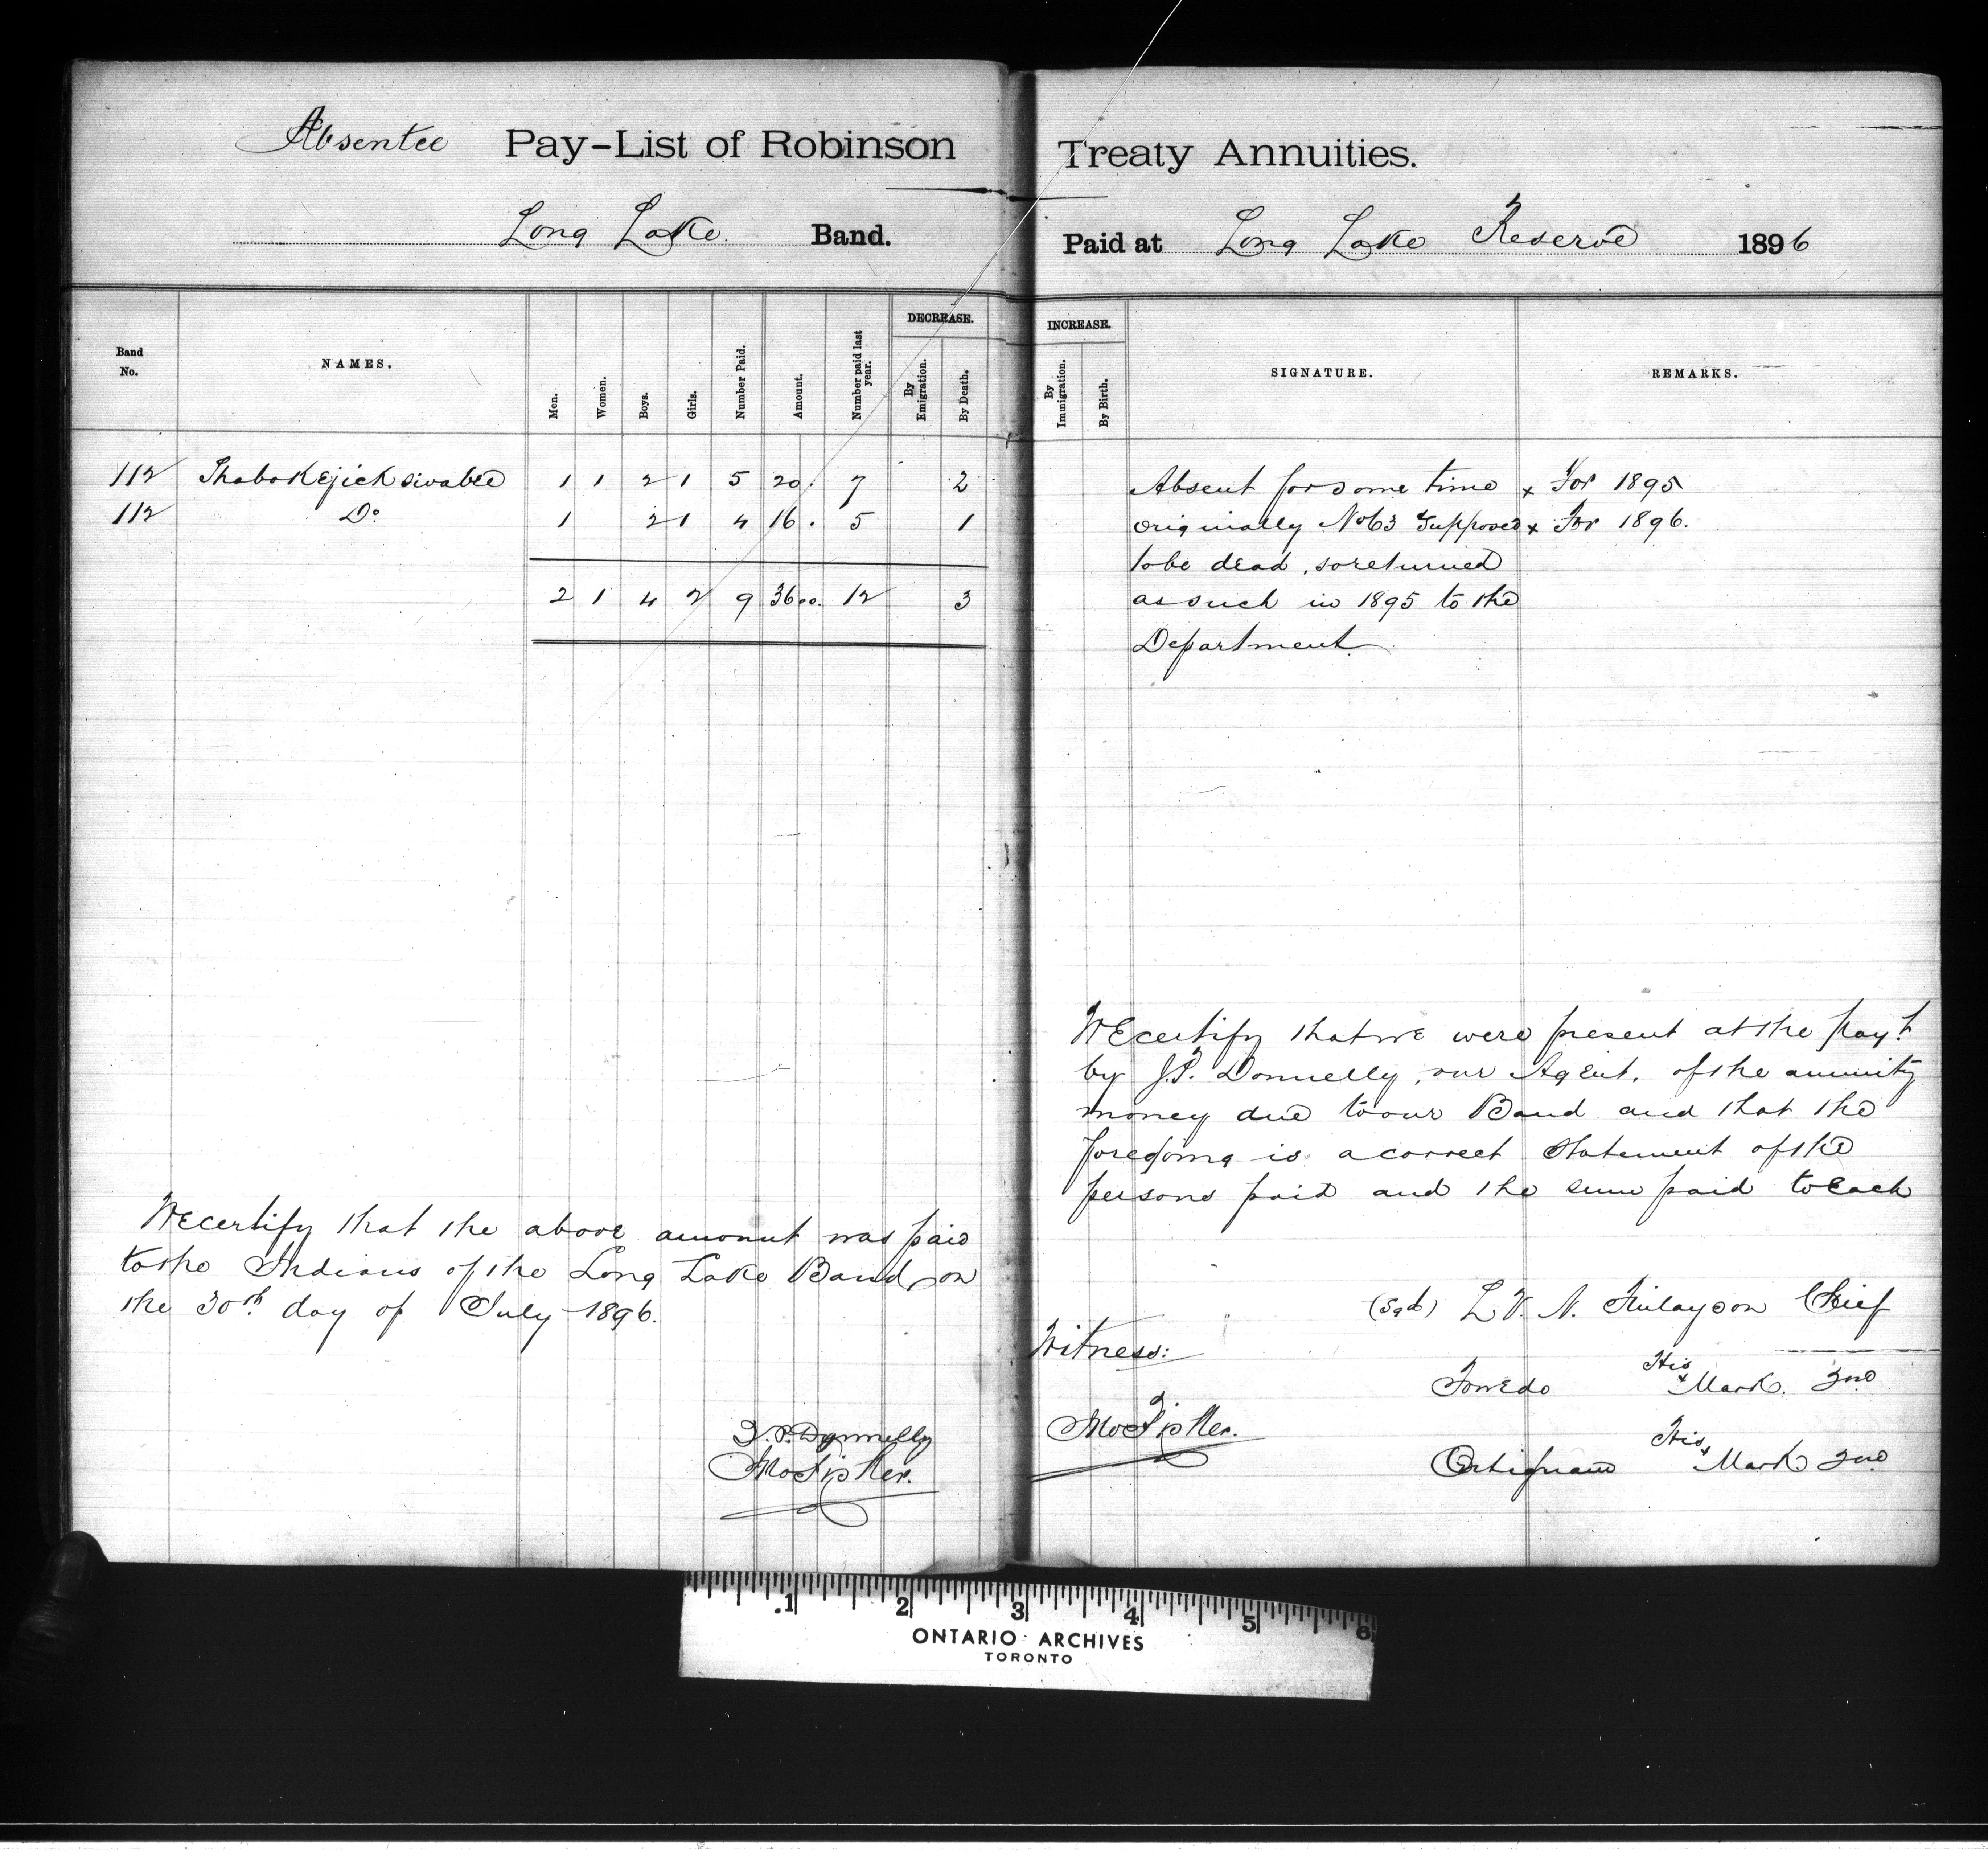 Absentee Pay-List of Robinson Treaty Annuities.
Long Lake. Band. Paid at Long Lake Reserve 1896
Band No. NAMES. Men. Women. Boys. Girls. Number Paid. Amount. Number paid last year. DECREASE. By Emigration. By Death.
INCREASE. By Immigration. By Birth. SIGNATURE. REMARKS.
112 ShabokEjick 1 1 2 1 5 20. 7 2 Absent for some time x For 1895
112 Do 1 2 1 4 16. 5 1 originally No 63 Supposed x For 1896.
to be dead, so returned
2 1 4 2 9 36 00. 12 3 as such in 1895 to the
Department.
WE certify that the above amount was paid
to the Indians of the Long Lake Band on
the 30th day of July 1896.
J.P. Donnelly
WE certify that we were present at the payt
by J.P. Donnelly, our Agent, of the annuity
money due to our Band and that the
foregoing is a correct Statement of the
persons paid and the sum paid to Each
(sgd) L V. N. Finlayson Chief
Witness:
His
x Mark. 2nd
His
x Mark 2nd
.1 2 3 4 5 6
ONTARIO ARCHIVES
TORONTO